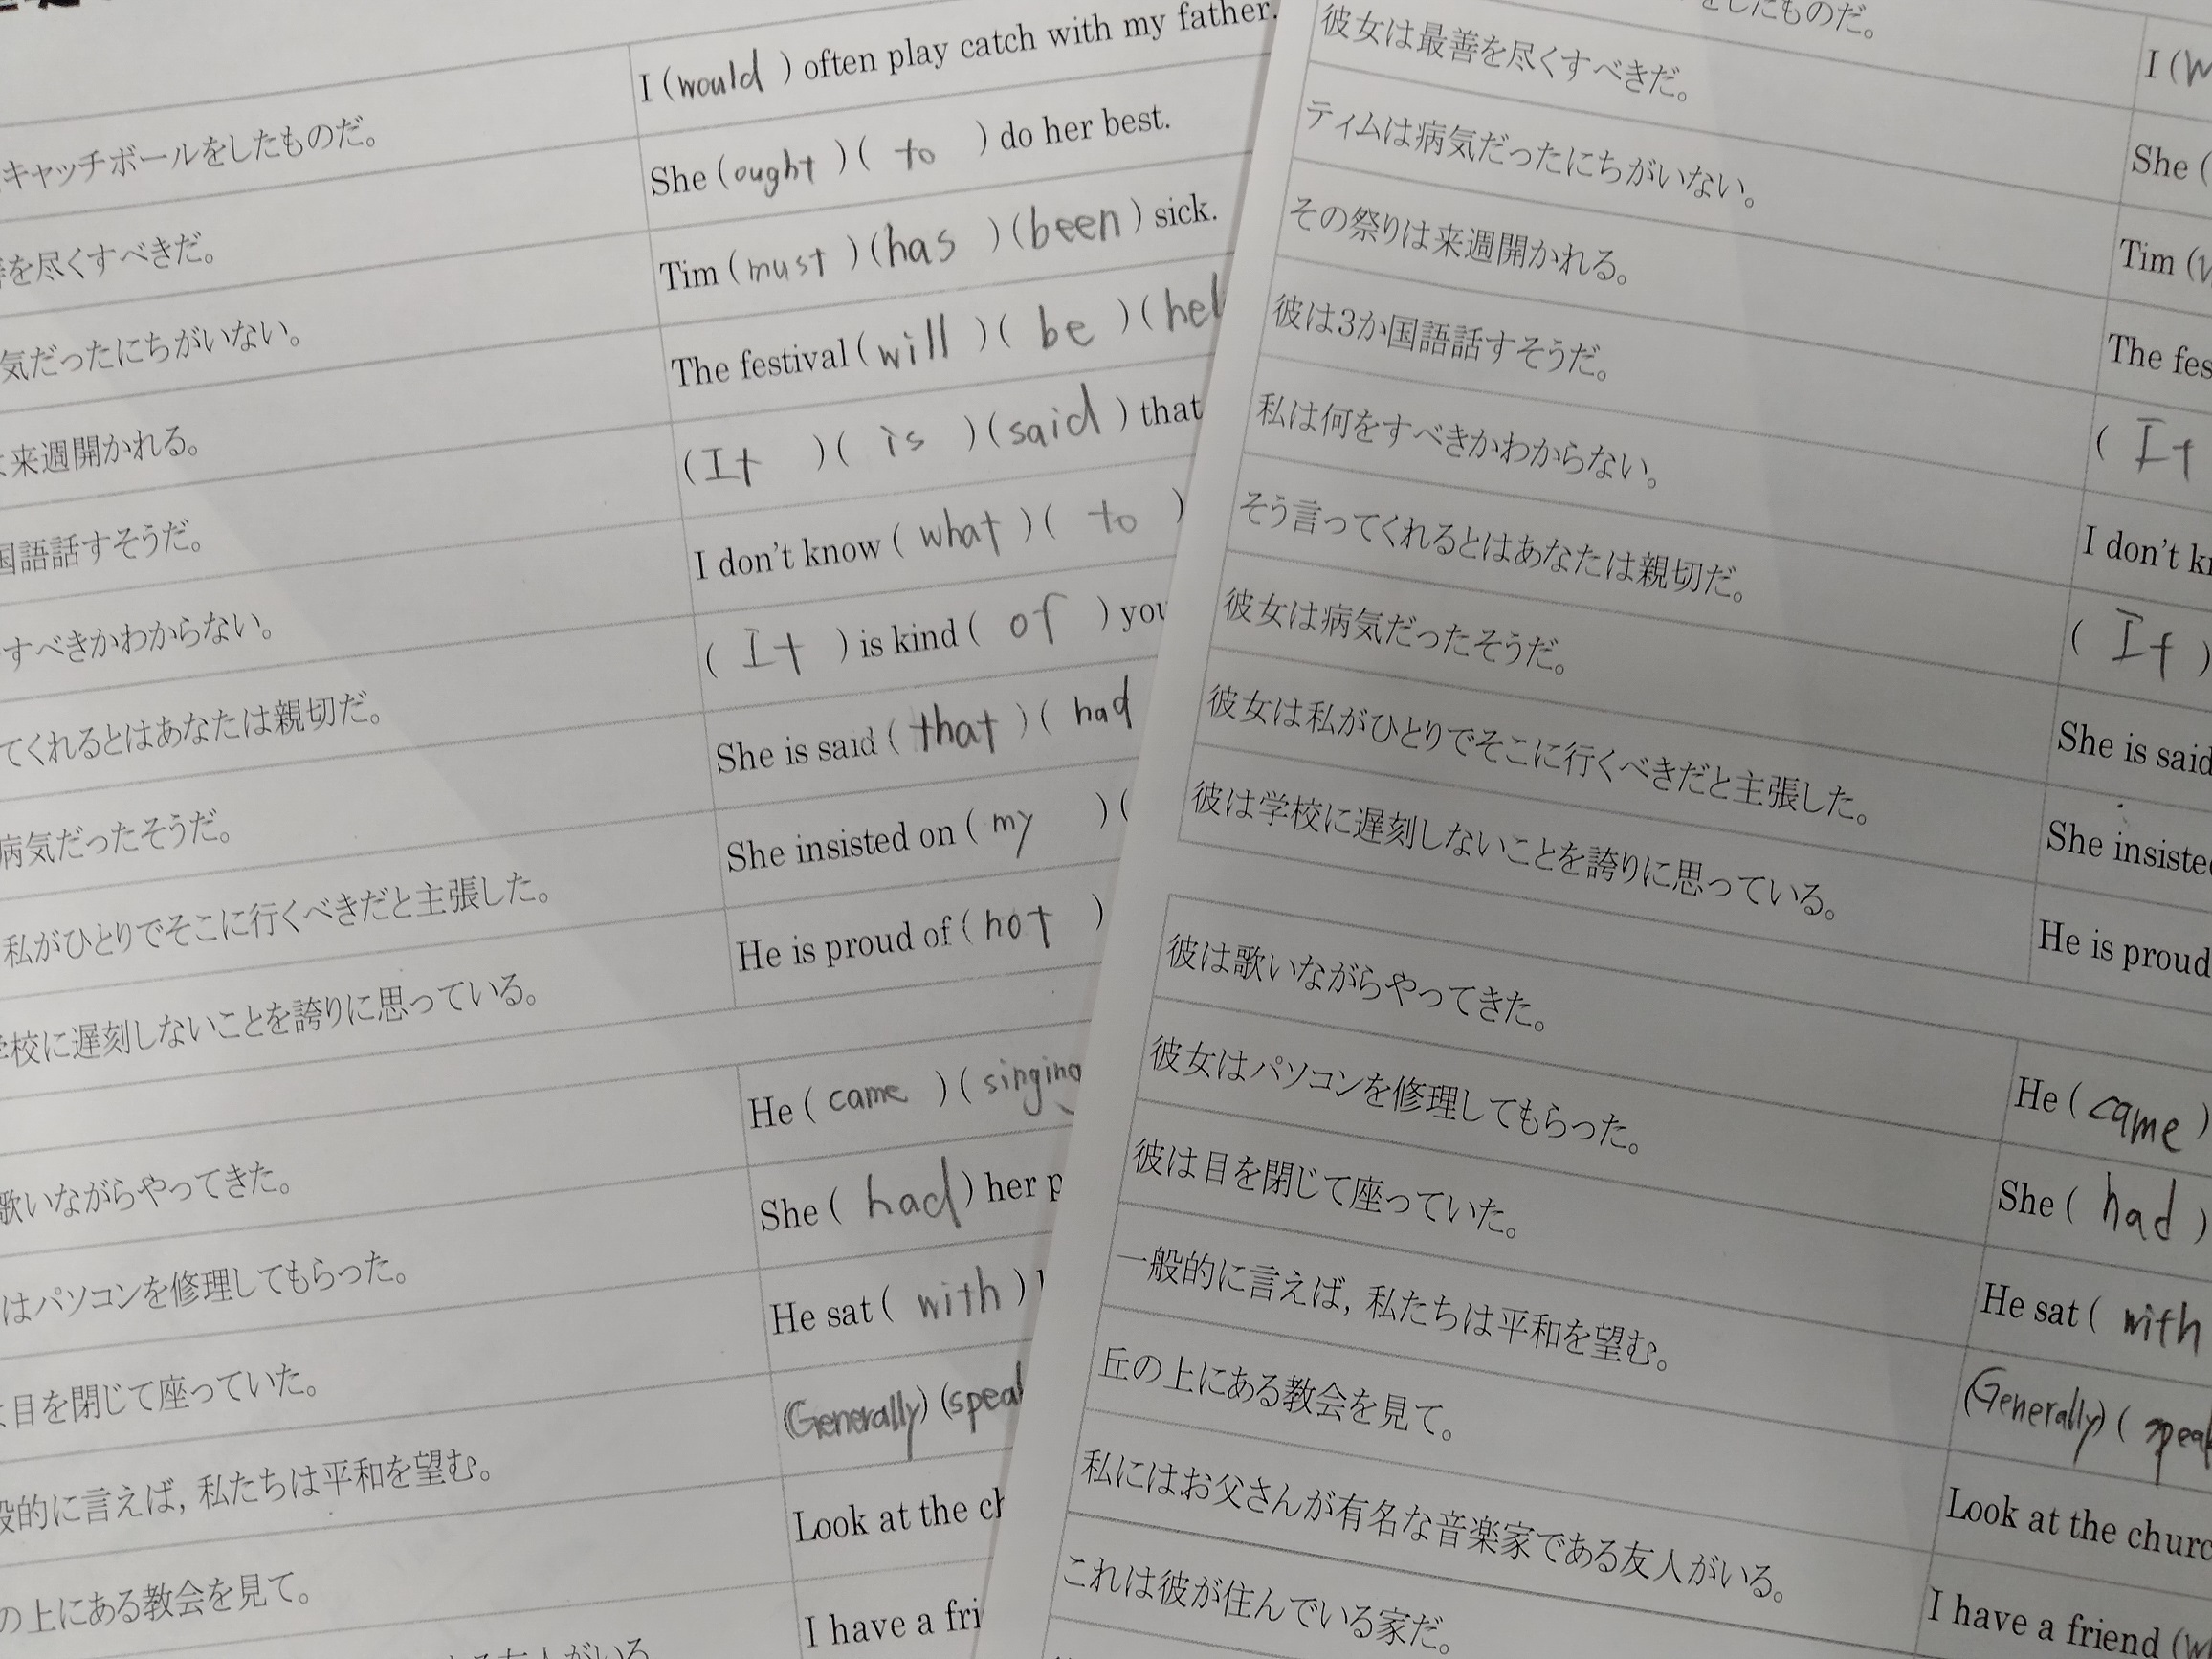 I (would) often play catch with my father.
キャッチボールをしたものだ。
She (ought)(to) do her best.
を尽くすべきだ。
Tim (must)(has)(been) sick.
気だったにちがいない。
The festival (will)(be)(hel
来週開かれる。
(It)(is)(said) that
国語話すそうだ。
I don't know (what)(to)
すべきかわからない。
(It) is kind (of) you
てくれるとはあなたは親切だ。
She is said (that)(had
病気だったそうだ。
She insisted on (my)(
私がひとりでそこに行くべきだと主張した。
He is proud of (not)
学校に遅刻しないことを誇りに思っている。
He (came)(singing
歌いながらやってきた。
She (had) her p
はパソコンを修理してもらった。
He sat (with)
目を閉じて座っていた。
(Generally)(speak
般的に言えば,私たちは平和を望む。
Look at the ch
の上にある教会を見て。
I have a fri
友人がいる
をしたものだ。
I (w
彼女は最善を尽くすべきだ。
She (
ティムは病気だったにちがいない。
Tim (
その祭りは来週開かれる。
The fes
彼は3か国語話すそうだ。
(It
私は何をすべきかわからない。
I don't k
そう言ってくれるとはあなたは親切だ。
(It)
彼女は病気だったそうだ。
She is said
彼女は私がひとりでそこに行くべきだと主張した。
She insiste
彼は学校に遅刻しないことを誇りに思っている。
He is proud
彼は歌いながらやってきた。
He (came)
彼女はパソコンを修理してもらった。
She (had)
彼は目を閉じて座っていた。
He sat (with
一般的に言えば,私たちは平和を望む。
(Generally)(speak
丘の上にある教会を見て。
Look at the churc
私にはお父さんが有名な音楽家である友人がいる。
I have a friend (w
これは彼が住んでいる家だ。